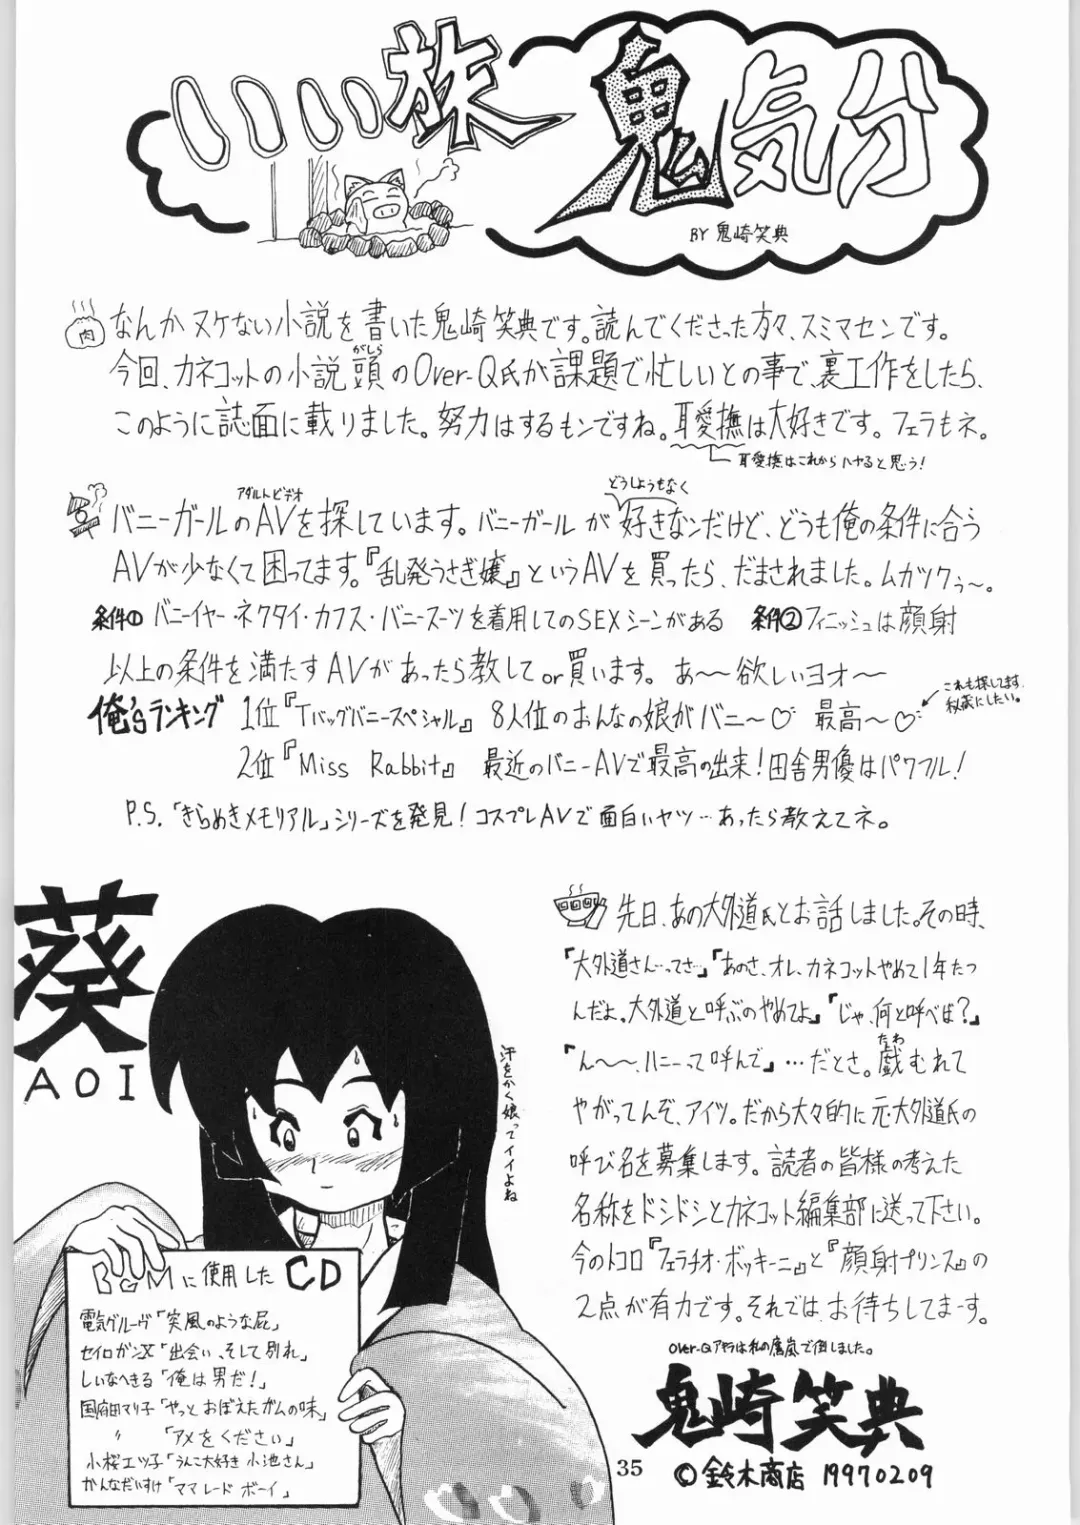 いい旅
鬼気分
BY 鬼崎笑典
肉
なんかヌケない小説を書いた鬼崎笑典です。読んでくださった方々、スミマセンです。
がしら
今回、カネコットの小説頭のOver-Q氏が課題で忙しいとの事で、裏工作をしたら、
このように誌面に載りました。努力はするモンですね。耳愛撫は大好きです。フェラもネ。
耳愛撫はこれからハヤると思う!
アダルトビデオ
どうしようもなく
バニーガールのAVを探しています。バニーガールが好きなンだけど、どうも俺の条件に合う
AVが少なくて困ってます。『乱発うさぎ嬢』というAVを買ったら、だまされました。ムカツクぅ〜。
条件① バニーイヤー・ネクタイ・カフス・バニースーツを着用してのSEXシーンがある 条件② フィニッシュは顔射
以上の条件を満たすAVがあったら教してor買います。あ〜〜欲しいヨオ〜
これも探してます。
秘蔵にしたい。
俺'sランキング 1位『Tバッグバニースペシャル』 8人位のおんなの娘がバニ〜♡ 最高〜♡
2位『Miss Rabbit』 最近のバニーAVで最高の出来!田舎男優はパワフル!
P.S.「きらめきメモリアル」シリーズを発見!コスプレAVで面白いヤツ…あったら教えてネ。
葵
AOI
汗をかく娘ってイイよね
BGMに使用したCD
電気グルーヴ「笑風のような屁」
セイロガン文「出会い、そして別れ」
しいなへきる「俺は男だ!」
国府田マリ子「やっとおぼえたガムの味」
〃 「アメをください」
小桜エツ子「うんこ大好き小池さん」
かんなだいすけ「ママレードボーイ」
先日、あの大外道氏とお話しました。その時、
「大外道さん…ってさ…」「あのさ、オレ、カネコットやめて1年たつ
んだよ。大外道と呼ぶのやめてよ」「じゃ、何と呼べば?」
「ん〜〜、ハニーって呼んで」…だとさ。戯むれて
たわ
やがってんぞ、アイツ。だから大々的に元・大外道氏の
呼び名を募集します。読者の皆様の考えた
名称をドシドシとカネコット編集部に送って下さい。
今のトコロ『フェラチオ・ボッキーニ』と『顔射プリンス』の
2点が有力です。それでは、お待ちしてまーす。
Over-Qアキラは私の陰嵐で倒しました。
鬼崎笑典
35
©鈴木商店 19970209